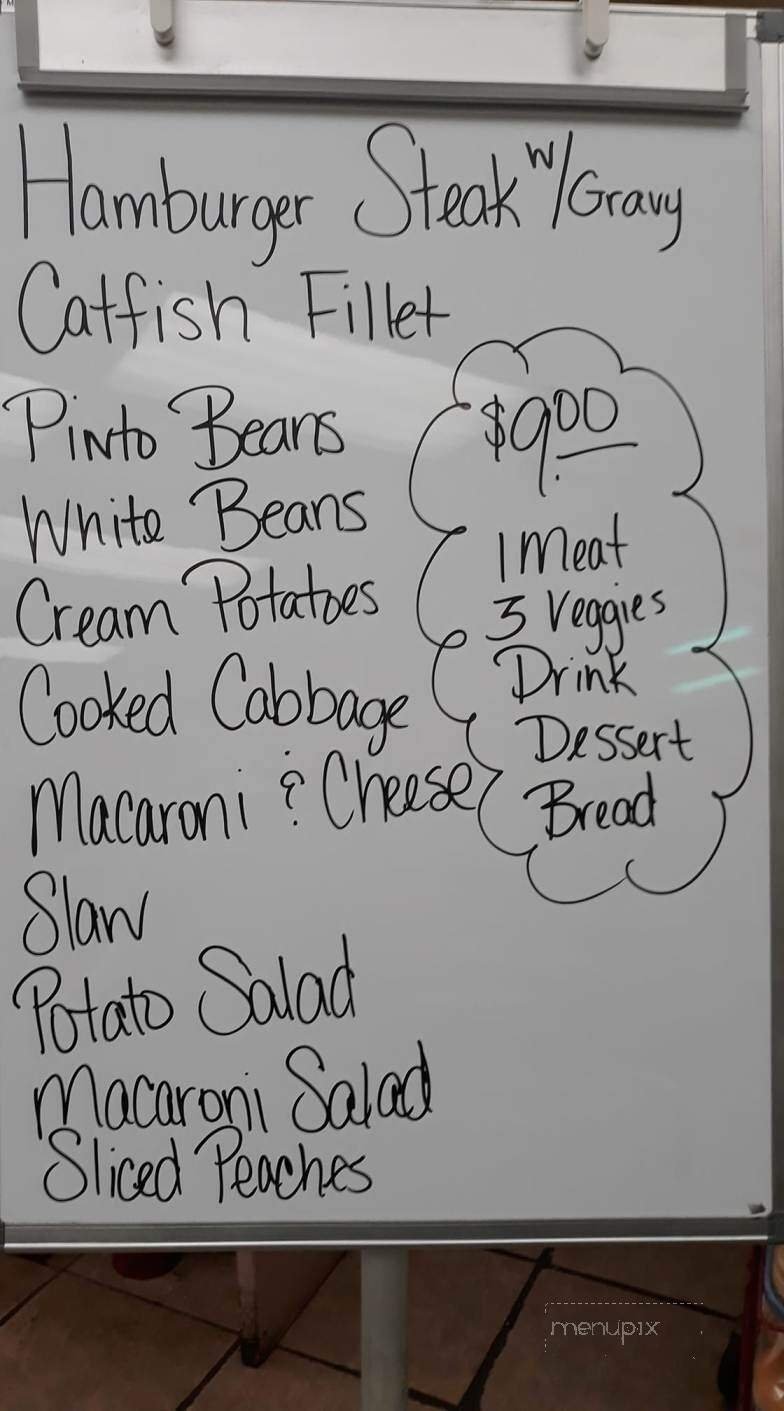 Hamburger Steak w/Gravy
Catfish Fillet
Pinto Beans
White Beans
Cream Potatoes
Cooked Cabbage
Macaroni & Cheese
Slaw
Potato Salad
Macaroni Salad
Sliced Peaches
$9.00
1 Meat
3 Veggies
Drink
Dessert
Bread
menupix